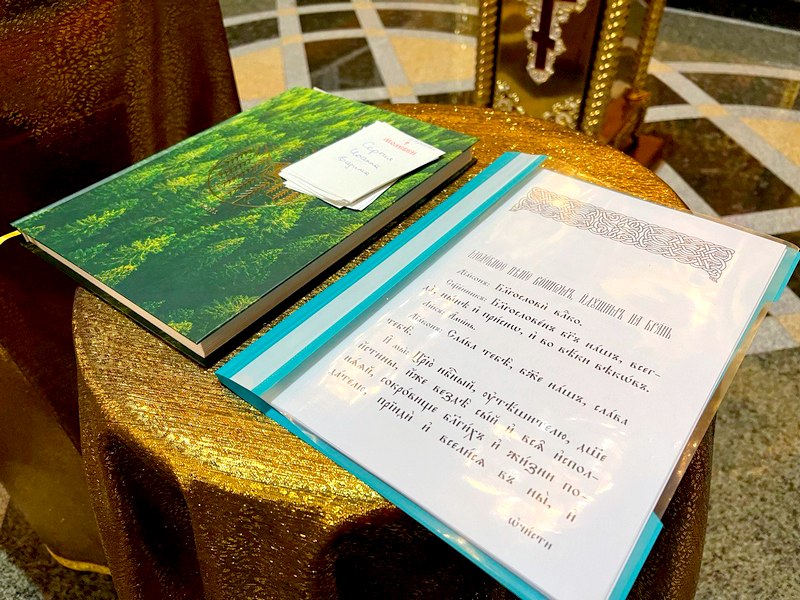 Сергия
МОЛЕ́БНОЕ ПѢ́НЇЕ ВО́ИНѠМЪ, И҆ДꙊ́ЩЫМЪ НА БРА́НЬ
Дїа́конъ: Бл҃гословѝ влⷣко.
Сщ҃е́нникъ: Бл҃гослове́нъ бг҃ъ на́шъ, всег-
да̀, ны́нѣ и҆ при́снѡ, и҆ во вѣ́ки вѣкѡ́въ.
Ли́къ: А҆ми́нь.
Дїа́конъ: Сла́ва тебѣ̀, бж҃е на́шъ, сла́ва
тебѣ̀.
И҆ мы̀: Цр҃ю̀ нбⷭ҇ный, ᲂу҆тѣ́шителю, дш҃е
и҆́стины, и҆́же вездѣ̀ сы́й и҆ всѧ̑ и҆спол-
нѧ́ѧй, сокро́вище бл҃ги́хъ и҆ жи́зни по-
да́телю, прїидѝ и҆ всели́сѧ въ ны̀, и҆
ѡ҆чи́сти